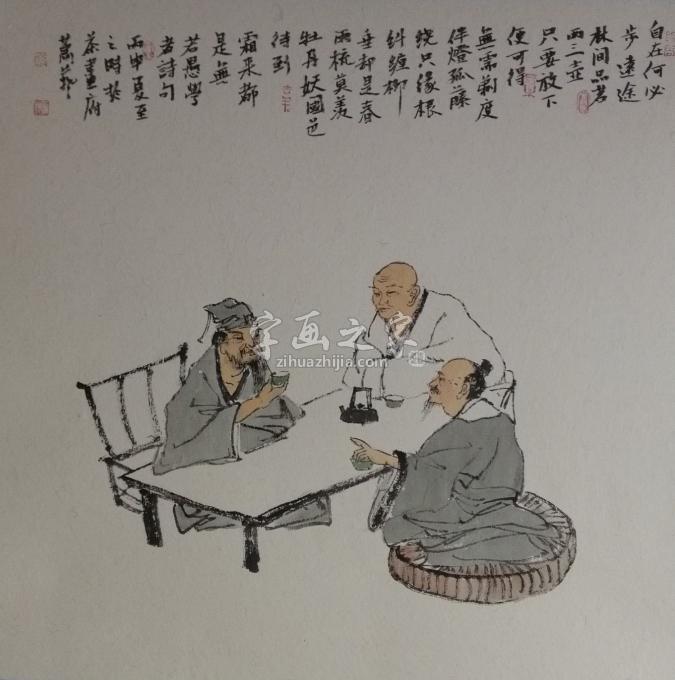 自在何必
步遠途
林间品茗
两三壶
只要放下
便可得
無需剃度
伴燈孤藤
绕只缘根
纠缠柳
垂却是春
雨梳莫羡
牡丹妖國色
待到
霜来都
是無
若愚學
者詩句
丙申夏至
之時於
茶畫府
萧藝
字画之家
zihuazhijia.com